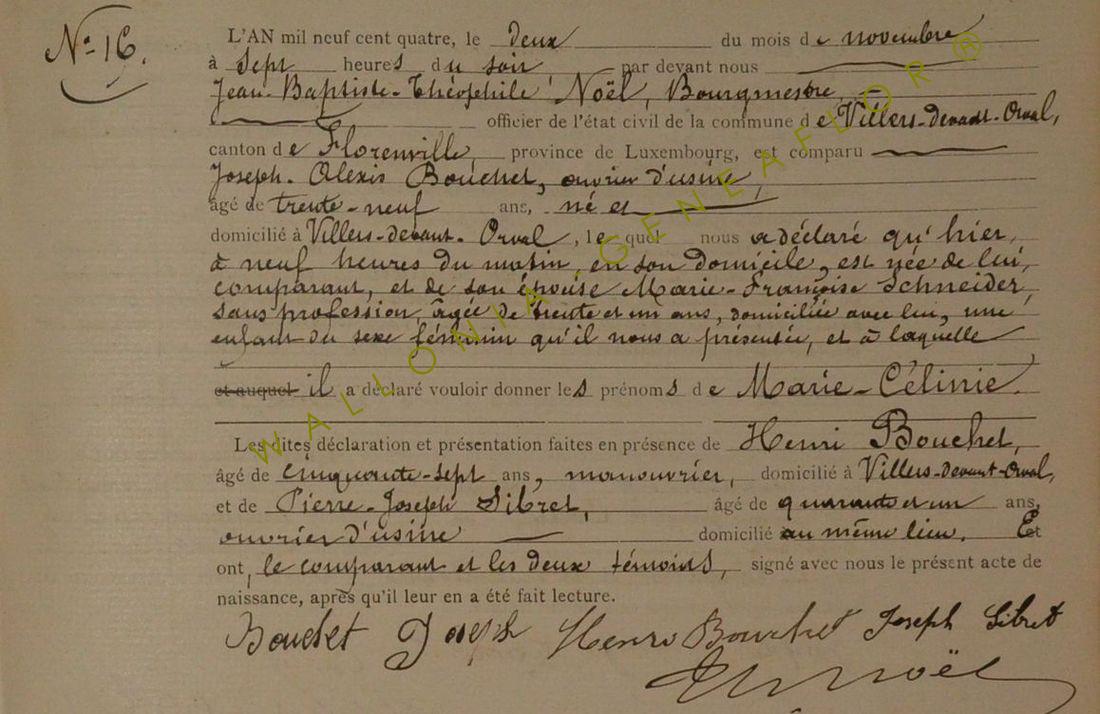 N° 16.
L'AN mil neuf cent quatre, le deux du mois de novembre
à Sept heures du soir par devant nous
Jean-Baptiste-Théophile Noël, Bourgmestre,
officier de l'état civil de la commune de Villers-devant-Orval,
canton de Florenville, province de Luxembourg, est comparu
Joseph-Alexis Bouchet, ouvrier d'usine,
âgé de trente-neuf ans, né et
domicilié à Villers-devant-Orval, lequel nous a déclaré qu'hier,
à neuf heures du matin, en son domicile, est née de lui,
comparant, et de son épouse Marie-Françoise Schneider,
sans profession, âgée de trente et un ans, domiciliée avec lui, une
enfant du sexe féminin qu'il nous a présentée, et à laquelle
et auquel il a déclaré vouloir donner les prénoms de Marie-Célinie.
Les dites déclaration et présentation faites en présence de Henri Bouchet,
âgé de cinquante-sept ans, manouvrier, domicilié à Villers-devant-Orval,
et de Pierre-Joseph Sibret, âgé de quarante et un ans,
ouvrier d'usine domicilié au même lieu. Et
ont, le comparant et les deux témoins, signé avec nous le présent acte de
naissance, après qu'il leur en a été fait lecture.
Bouchet Joseph Henri Bouchet Joseph Sibret
Th Noël
WALLONIA GENEAFLOR ®